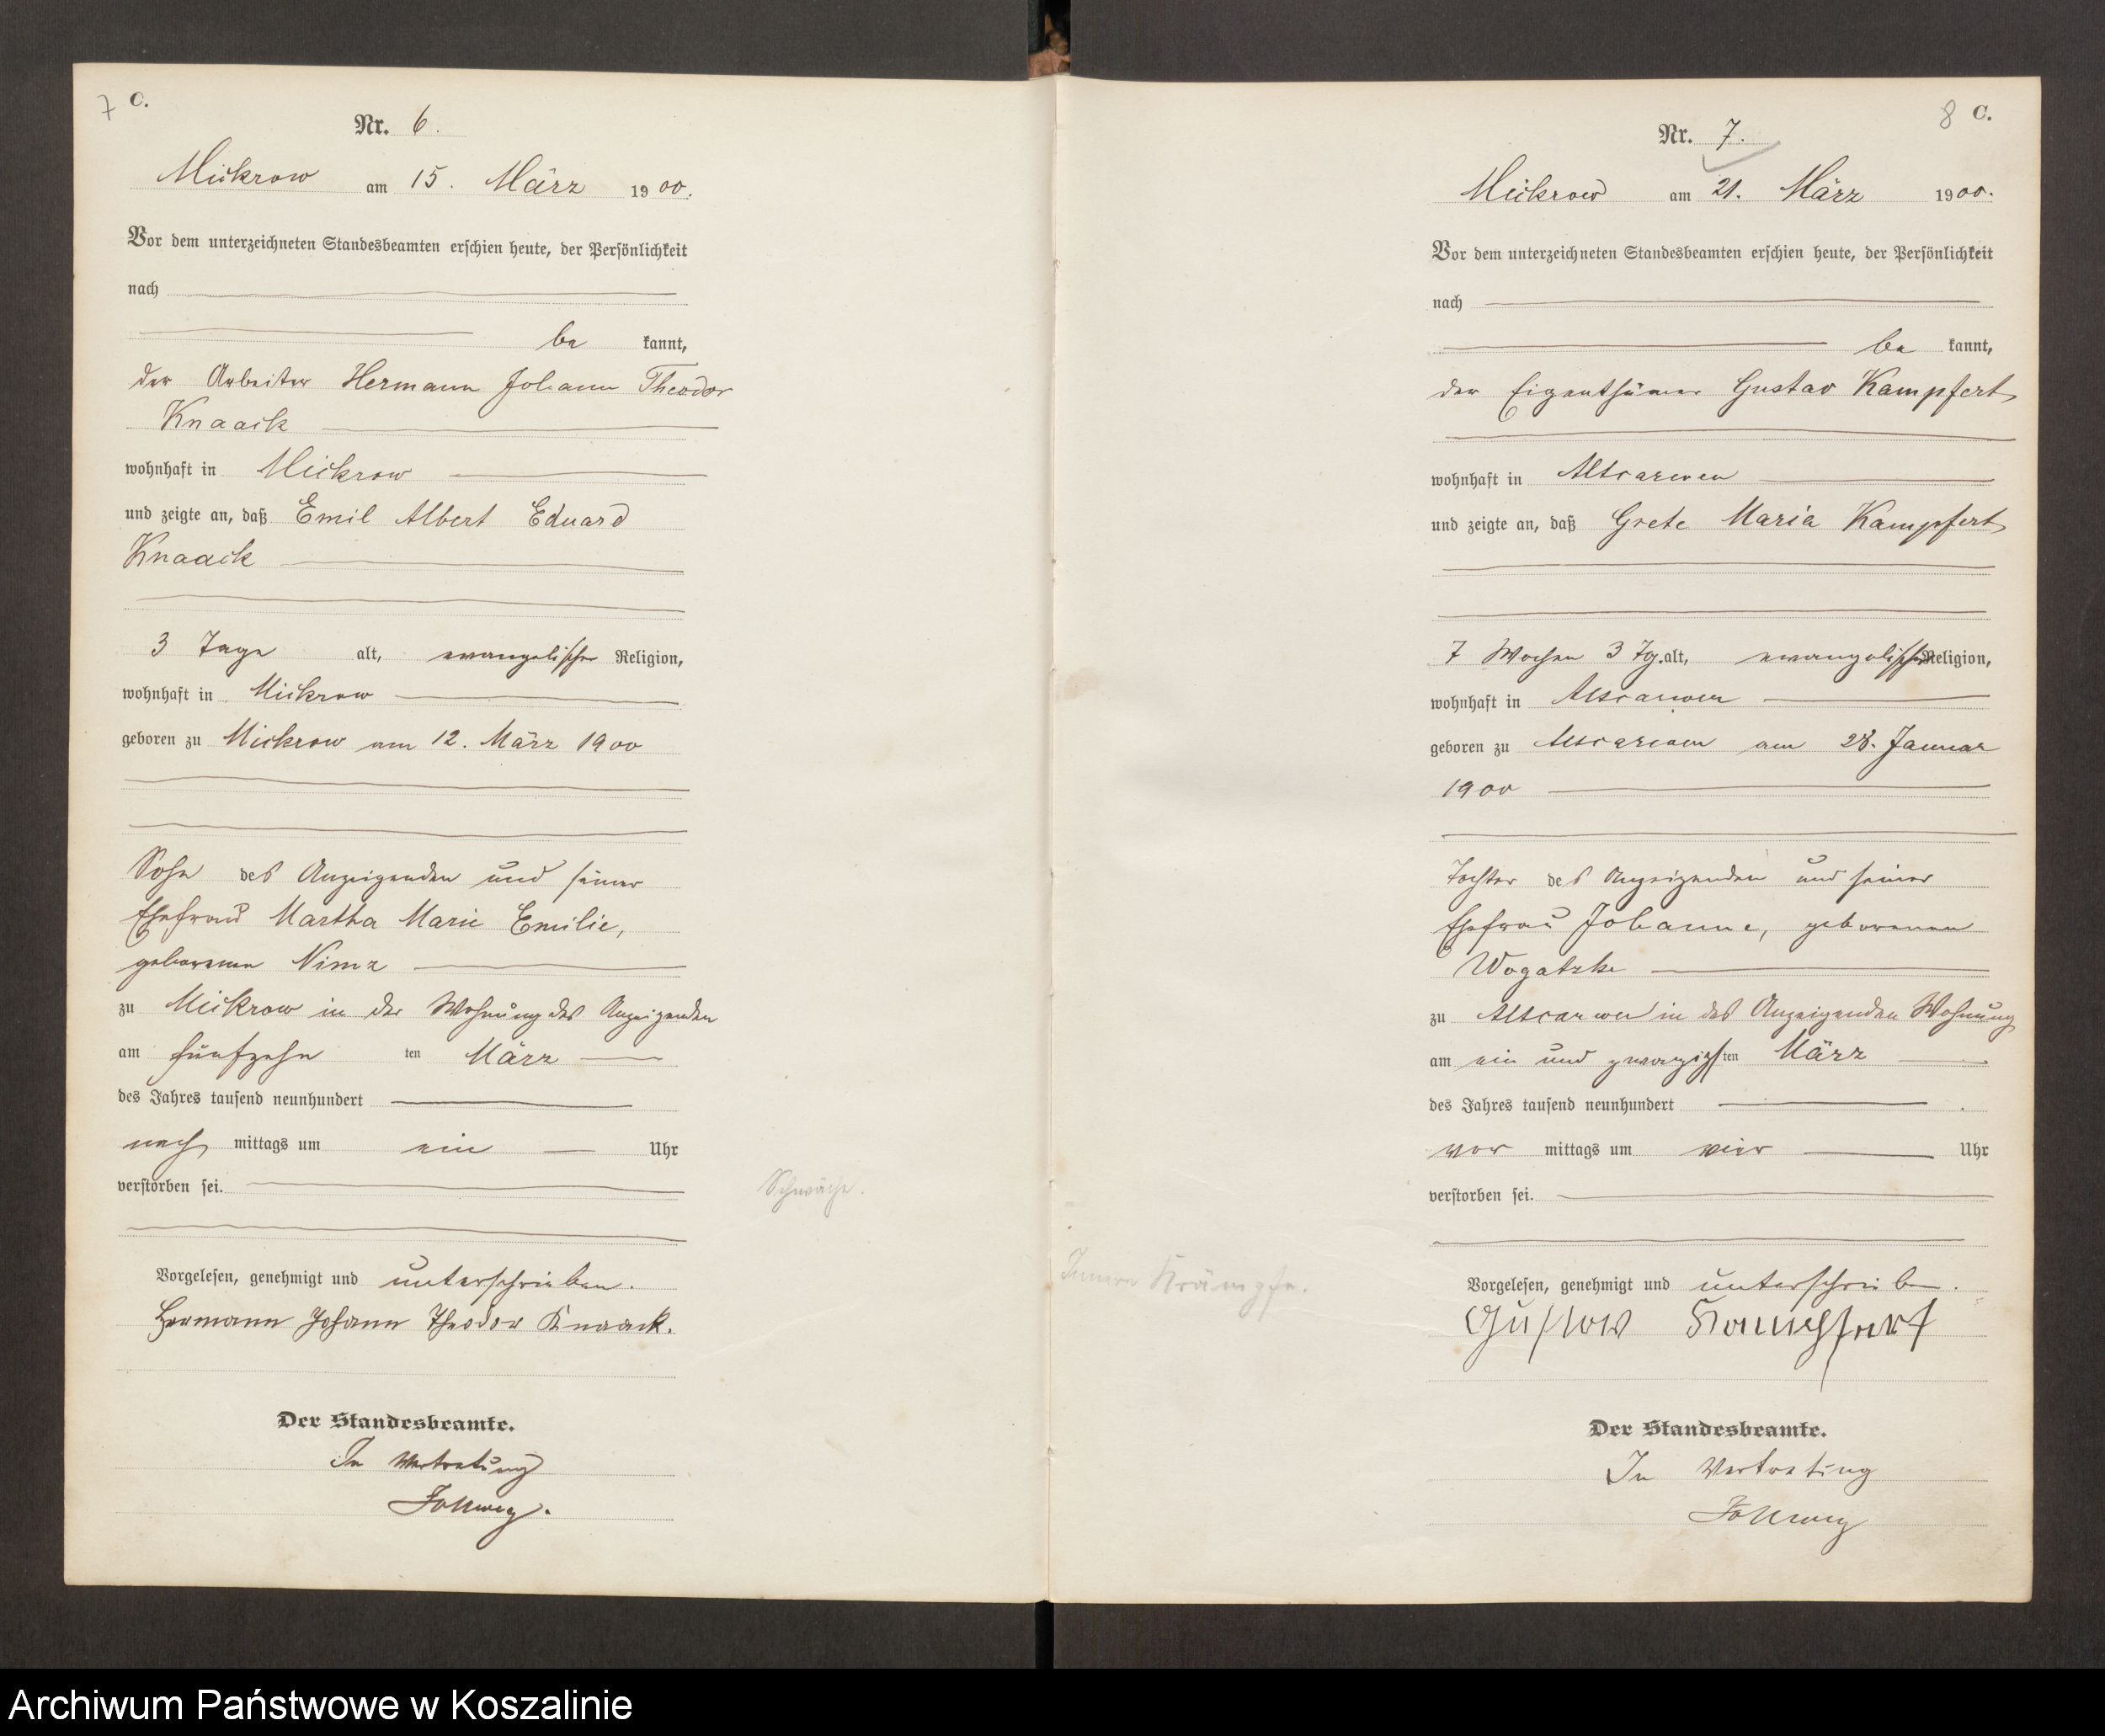 7 C.
Nr. 6.
Mickrow am 15. März 1900.
Vor dem unterzeichneten Standesbeamten erschien heute, der Persönlichkeit
nach
be kannt,
der Arbeiter Hermann Johann Theodor
Knaack
wohnhaft in Mickrow
und zeigte an, daß Emil Albert Eduard
Knaack
3 Tage alt, evangelischer Religion,
wohnhaft in Mickrow
geboren zu Mickrow am 12. März 1900
Sohn des Anzeigenden und seiner
Ehefrau Martha Marie Emilie,
geborenen Nimz
zu Mickrow in der Wohnung des Anzeigenden
am fünfzehn ten März
des Jahres tausend neunhundert
nach mittags um ein Uhr
verstorben sei.
Schwäche.
Vorgelesen, genehmigt und unterschrieben.
Hermann Johann Theodor Knaack.
Der Standesbeamte.
In Vertretung
8 C.
Nr. 7.
Mickrow am 21. März 1900.
Vor dem unterzeichneten Standesbeamten erschien heute, der Persönlichkeit
nach
be kannt,
der Eigenthümer Gustav Kampfert
wohnhaft in Altcarwen
und zeigte an, daß Grete Maria Kampfert
7 Wochen 3 Tg. alt, evangelischer Religion,
wohnhaft in Altcarwen
geboren zu Altcarwen am 28. Januar
1900
Tochter des Anzeigenden und seiner
Ehefrau Johanne, geborenen
Wogatzke
zu Altcarwen in des Anzeigenden Wohnung
am ein und zwanzigsten März
des Jahres tausend neunhundert
vor mittags um vier Uhr
verstorben sei.
Innere Krämpfe.
Vorgelesen, genehmigt und unterschrieben.
Gustav Kampfert
Der Standesbeamte.
In Vertretung
Archiwum Państwowe w Koszalinie